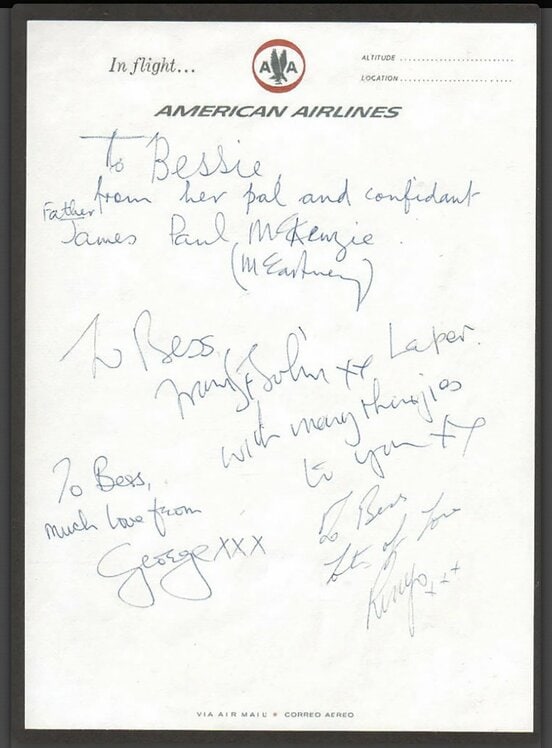 In flight...
AA
ALTITUDE
LOCATION
AMERICAN AIRLINES
To Bessie,
from her pal and confidant
Father
James Paul McKenzie.
(McCartney)
To Bess,
John xx
Laper.
with many thanjies
to you xx
To Bess,
much love from
George xxx
To Bess
Lots of love
Ringo xxx
VIA AIR MAIL * CORREO AEREO